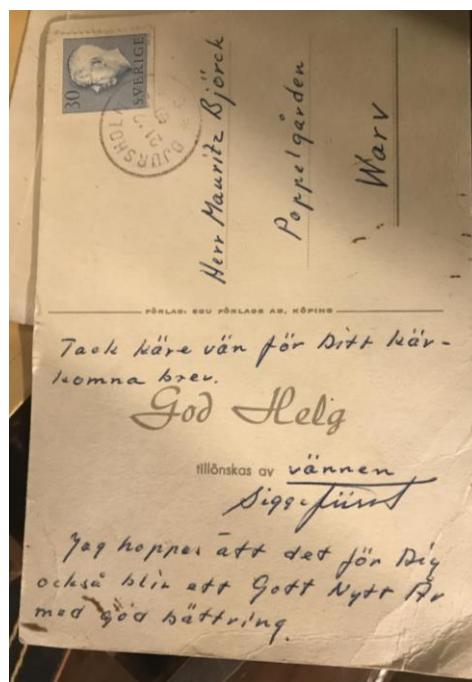 30
SVERIGE
DJURSHOLM
21.12
Herr Mauritz Björck
Poppelgården
Warv
FÖRLAG: EGU FÖRLAGS AB, KÖPING
Tack käre vän för Ditt kär-
komna brev.
God Helg
tillönskas av vännen
Sigge Fürst
Jag hoppas att det för Dig
också blir ett Gott Nytt År
med god bättring.